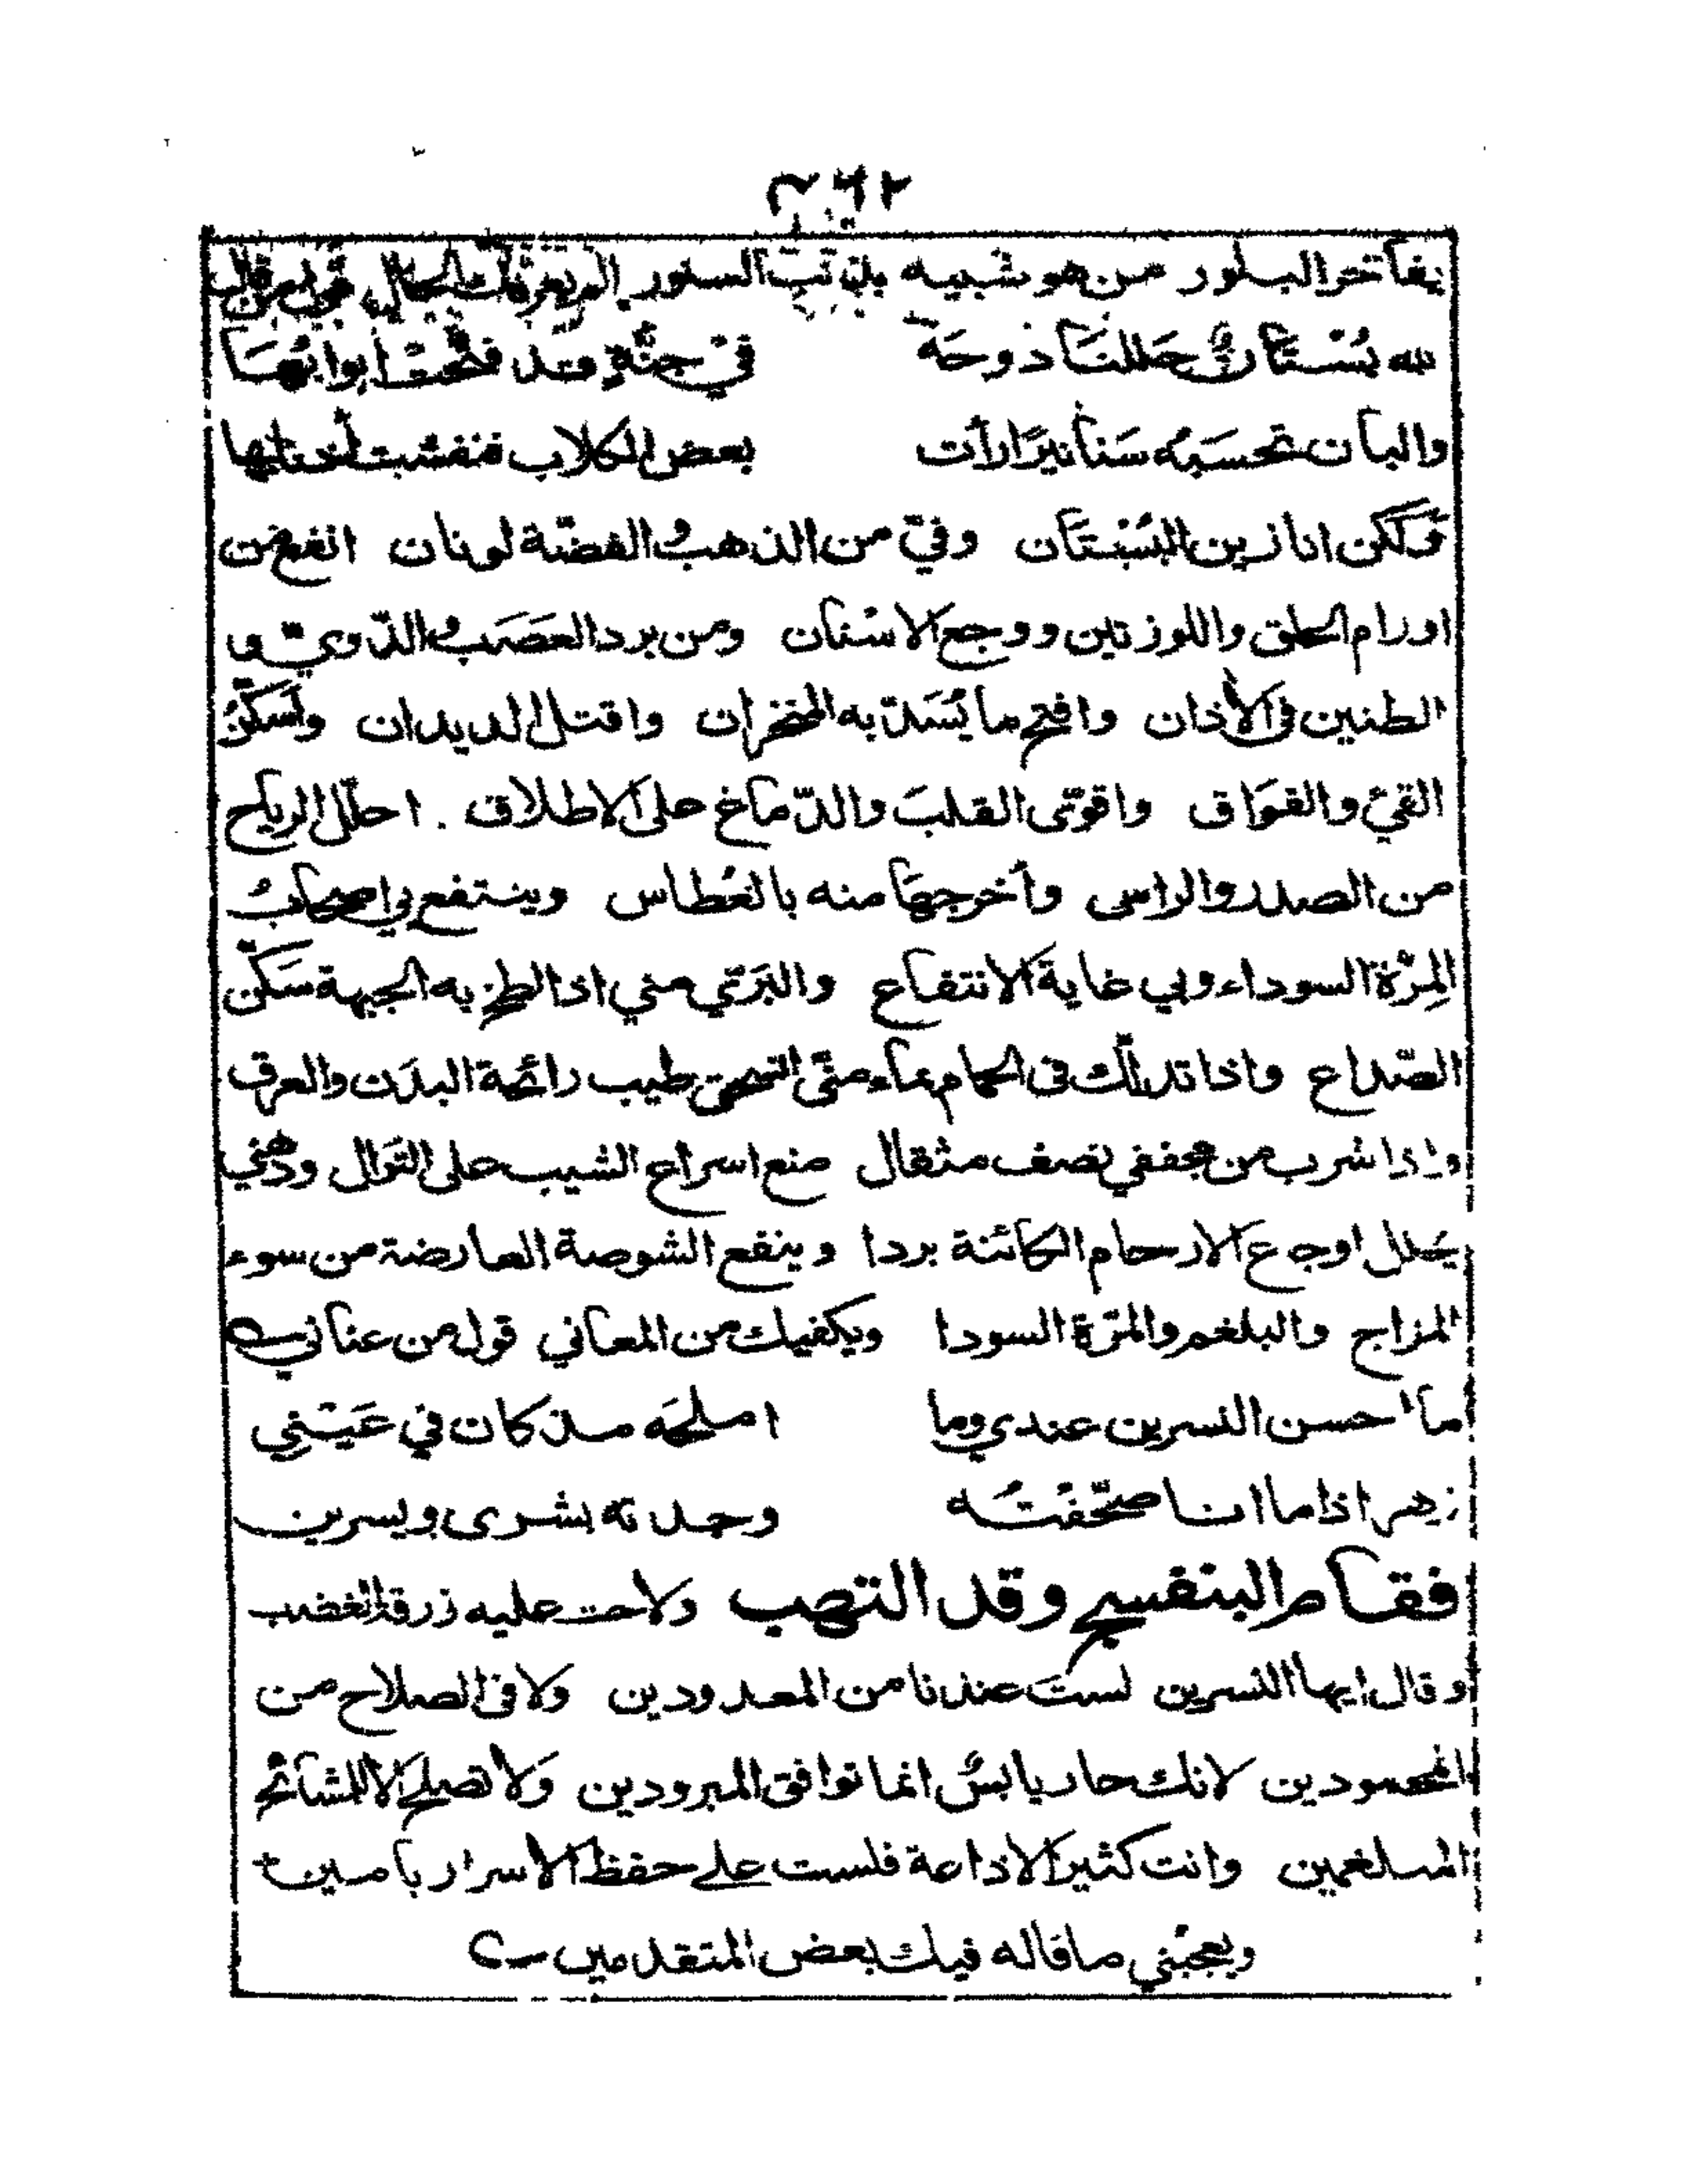 ٢٦٢
يفاخر البلور من هو شبيه السنور
لله بُسْتَانٌ حَللنَا دَوحَة في جنَّةٍ وقد فتّحتْ ابوابُهَا
والبان تحسَبهُ سَنانيرًا رأت بعض الكلاب فنفشت أذنابها
ولكن انا زين البُسْتَان وفيّ من الذهب والفضّة لونان انفع من
اورام الحلق واللوزتين ووجع الاسْنان ومن برد العصَب والدّويّ و
الطنين في الأذان وافتح ما يُسَدّ به المنخران واقتل الديدان واسَكّنُ
القيْ والفوَاق واقوّى القلبَ والدّماغ على الاطلاق . احلّل الرياح
من الصدر والراس وأخرجهَا منه بالعُطاس وينتفع بي اصحابُ
المِرّة السوداء وبي غاية الانتفاع والبَرّي مني اذا لطخ به الجبهة سَكّن
الصّداع واذا تدلّك في الحمام بماء منّي انسحق طيب رائحة البدَن والعرق
واذا شرب من مجففي نصف مثقال منع اسراع الشيب على التوَال ودُهني
يحَلل اوجاع الارحام الكائنة بردا وينفع الشوصة العارضة من سوء
المزاج والبلغم والمرّة السودا ويكفيك من المعاني قول من عناني
ما احسن النسرين عندي وما املحَه مذ كان في عَيْني
زهر اذا ما انا صحّفْتُه وجدته بشرى ويسرين
فقام البنفسج وقد التهب ولاحت عليه زرقة الغضب
وقال ايها النسرين لستَ عندنا من المعدودين ولا في الصلاح من
المحسودين لانك حار يابسٌ انما توافق المبرودين وَلا تصلح الا للمشائخ
المبلغمين وانت كثير الاذاعة فلست على حفظ الاسرار بامين
ويعجبْني ما قاله فيك بعض المتقدمين